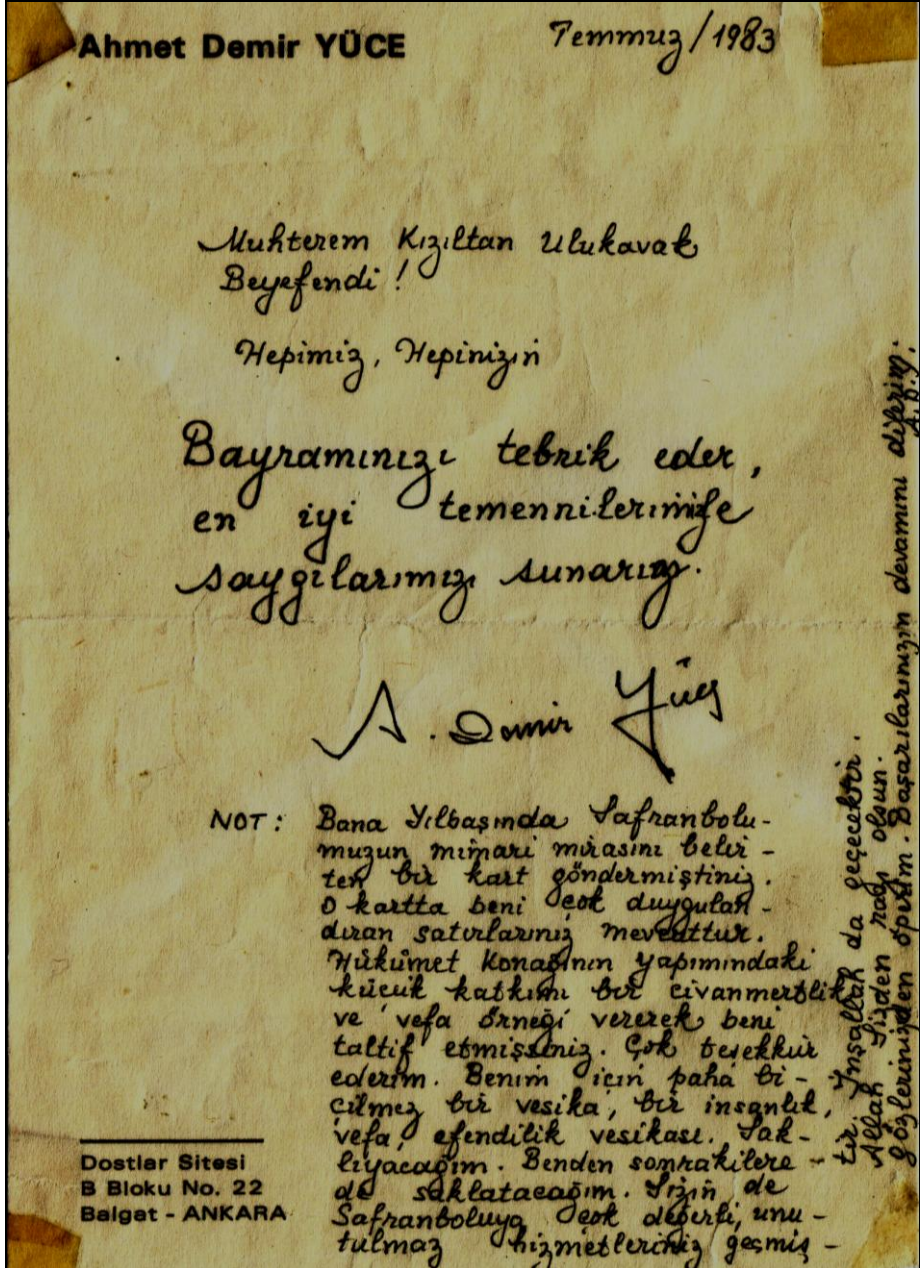 Ahmet Demir YÜCE
Temmuz/1983
Muhterem Kızıltan Ulukavak
Beyefendi!
Hepimiz, Hepinizin
Bayramınızı tebrik eder,
en iyi temennilerimizle
saygılarımızı sunarız.
A. Demir Yüce
NOT: Bana Yılbaşında Safranbolu-
muzun mimari mirasını belir-
ten bir kart göndermiştiniz.
O kartta beni çok duygulan-
dıran satırlarınız mevcuttur.
Hükûmet Konağının yapımındaki
küçük katkımı bir civanmertlik
ve vefa örneği vererek beni
taltif etmişsiniz. Çok teşekkür
ederim. Benim için paha bi-
çilmez bir vesika, bir insanlık,
vefa, efendilik vesikası. Sak-
lıyacağım. Benden sonrakilere
de saklatacağım. Sizin de
Safranboluya çok değerli, unu-
tulmaz hizmetleriniz geçmiş-
tir. İnşallah da geçecektir.
Allah Sizden razı olsun.
Gözlerinizden öperim. Başarılarınızın devamını dilerim.
A.D.Y.
Dostlar Sitesi
B Bloku No. 22
Balgat - ANKARA